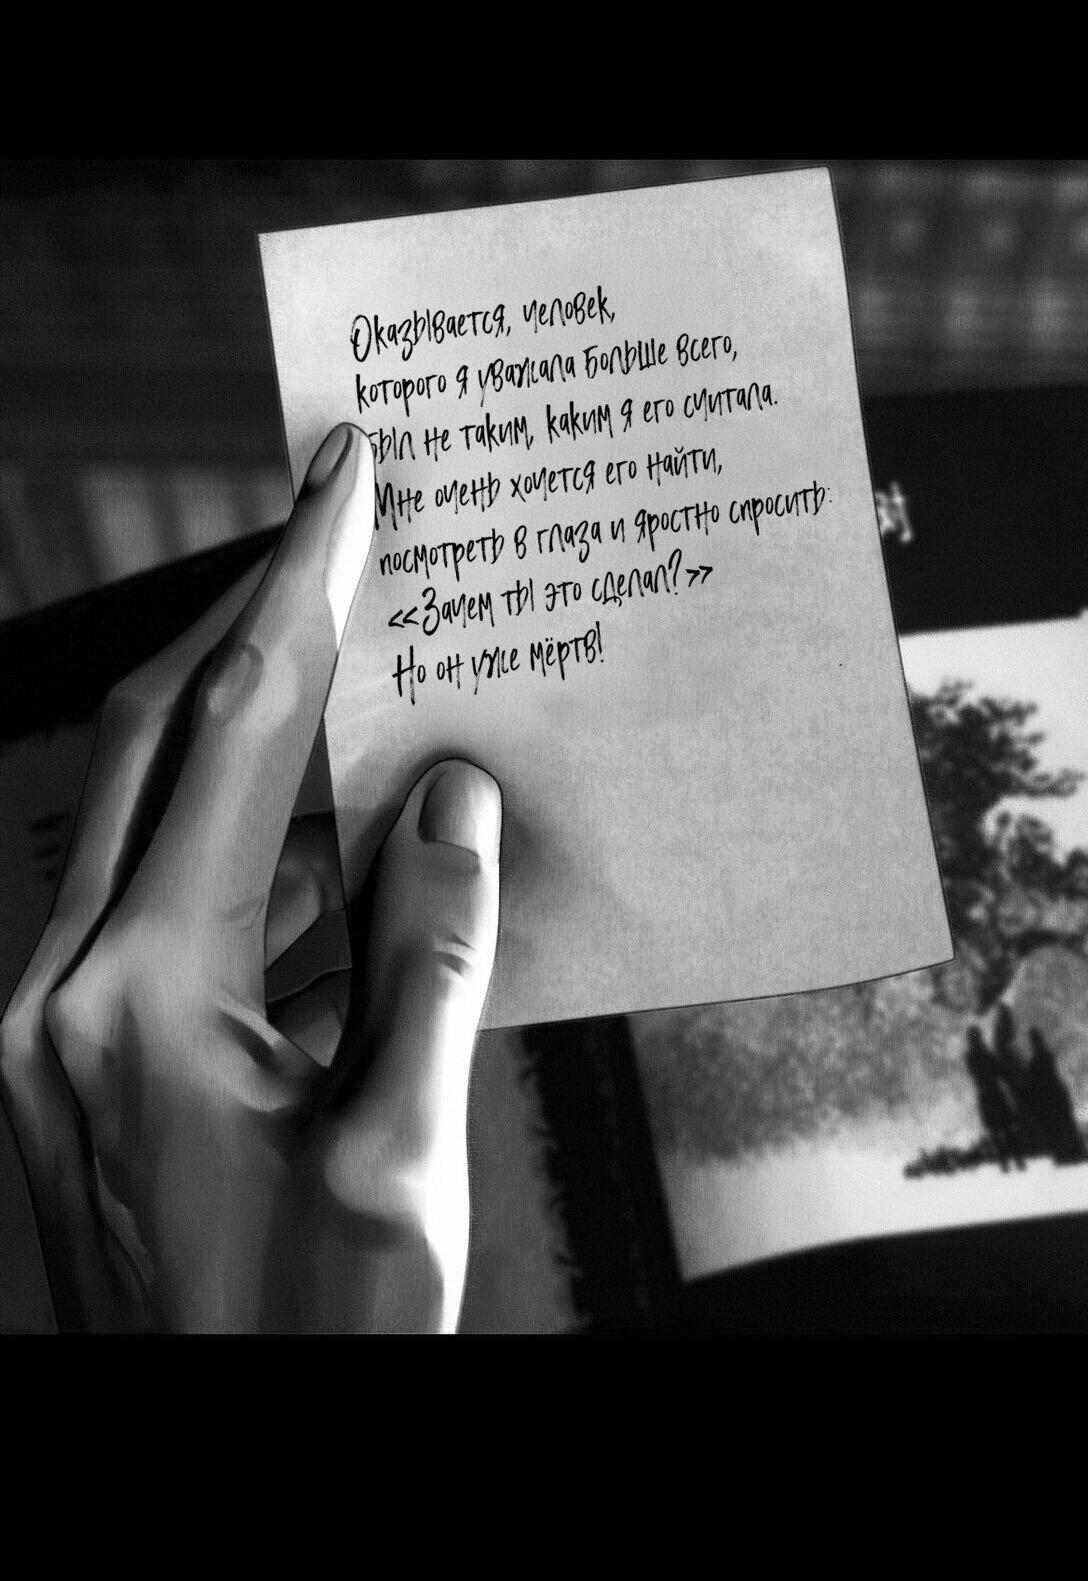 Оказывается, человек,
которого я уважала больше всего,
был не таким, каким я его считала.
Мне очень хочется его найти,
посмотреть в глаза и яростно спросить:
«Зачем ты это сделал?»
Но он уже мёртв!